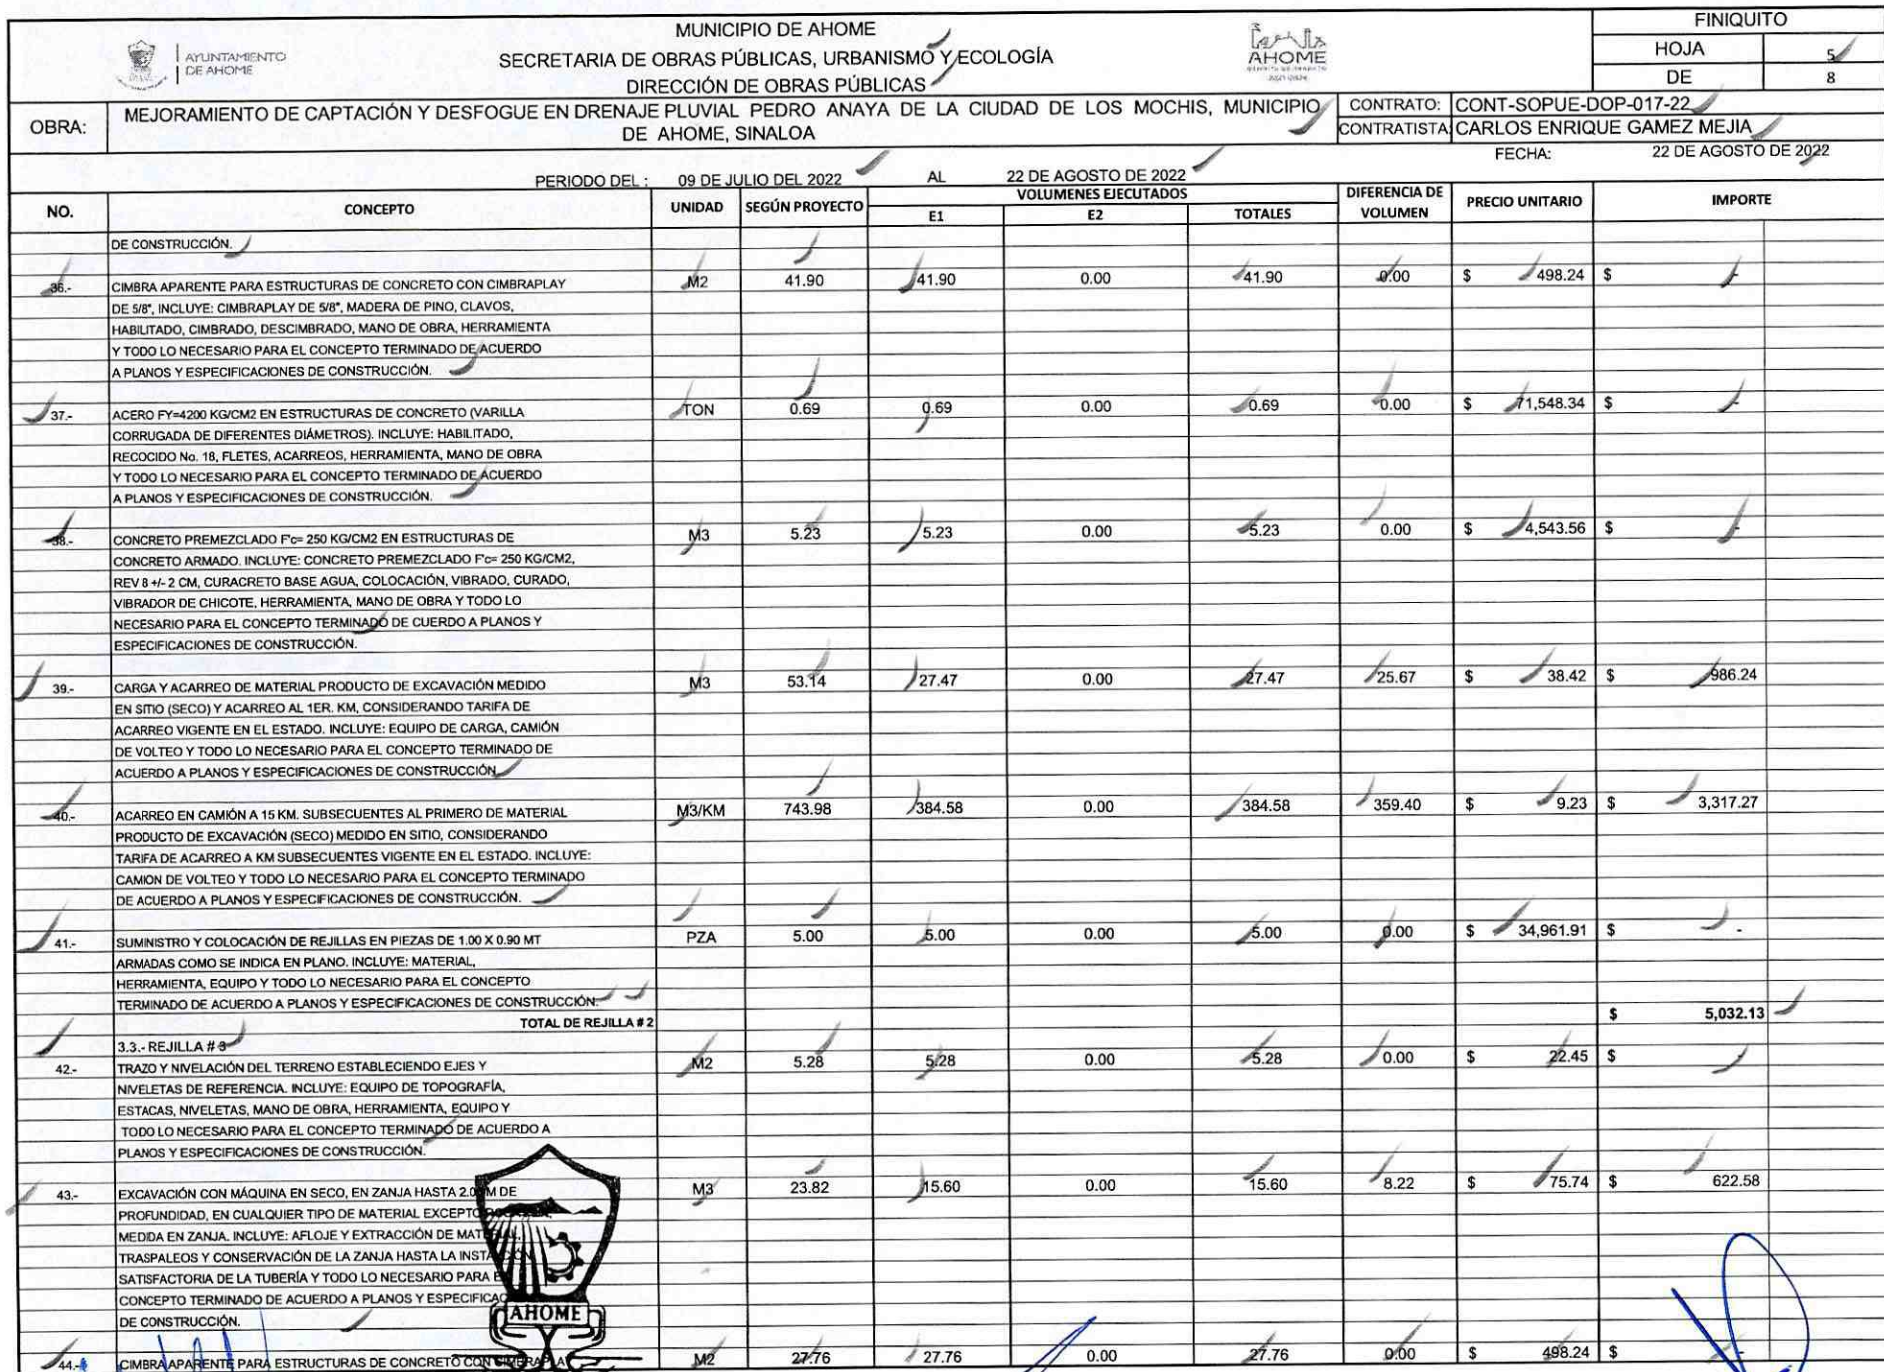 AYUNTAMIENTO
DE AHOME
MUNICIPIO DE AHOME
SECRETARIA DE OBRAS PÚBLICAS, URBANISMO Y ECOLOGÍA
DIRECCIÓN DE OBRAS PÚBLICAS
AHOME
FINIQUITO
HOJA 5
DE 8
OBRA: MEJORAMIENTO DE CAPTACIÓN Y DESFOGUE EN DRENAJE PLUVIAL PEDRO ANAYA DE LA CIUDAD DE LOS MOCHIS, MUNICIPIO
DE AHOME, SINALOA
CONTRATO: CONT-SOPUE-DOP-017-22
CONTRATISTA CARLOS ENRIQUE GAMEZ MEJIA
FECHA: 22 DE AGOSTO DE 2022
PERIODO DEL : 09 DE JULIO DEL 2022 AL 22 DE AGOSTO DE 2022
NO. CONCEPTO UNIDAD SEGÚN PROYECTO VOLUMENES EJECUTADOS DIFERENCIA DE VOLUMEN PRECIO UNITARIO IMPORTE
E1 E2 TOTALES
DE CONSTRUCCIÓN.
36.- CIMBRA APARENTE PARA ESTRUCTURAS DE CONCRETO CON CIMBRAPLAY M2 41.90 41.90 0.00 41.90 0.00 $ 498.24 $ -
DE 5/8", INCLUYE: CIMBRAPLAY DE 5/8", MADERA DE PINO, CLAVOS,
HABILITADO, CIMBRADO, DESCIMBRADO, MANO DE OBRA, HERRAMIENTA
Y TODO LO NECESARIO PARA EL CONCEPTO TERMINADO DE ACUERDO
A PLANOS Y ESPECIFICACIONES DE CONSTRUCCIÓN.
37.- ACERO FY=4200 KG/CM2 EN ESTRUCTURAS DE CONCRETO (VARILLA TON 0.69 0.69 0.00 0.69 0.00 $ 71,548.34 $ -
CORRUGADA DE DIFERENTES DIÁMETROS). INCLUYE: HABILITADO,
RECOCIDO No. 18, FLETES, ACARREOS, HERRAMIENTA, MANO DE OBRA
Y TODO LO NECESARIO PARA EL CONCEPTO TERMINADO DE ACUERDO
A PLANOS Y ESPECIFICACIONES DE CONSTRUCCIÓN.
38.- CONCRETO PREMEZCLADO F'c= 250 KG/CM2 EN ESTRUCTURAS DE M3 5.23 5.23 0.00 5.23 0.00 $ 4,543.56 $ -
CONCRETO ARMADO. INCLUYE: CONCRETO PREMEZCLADO F'c= 250 KG/CM2,
REV 8 +/- 2 CM, CURACRETO BASE AGUA, COLOCACIÓN, VIBRADO, CURADO,
VIBRADOR DE CHICOTE, HERRAMIENTA, MANO DE OBRA Y TODO LO
NECESARIO PARA EL CONCEPTO TERMINADO DE CUERDO A PLANOS Y
ESPECIFICACIONES DE CONSTRUCCIÓN.
39.- CARGA Y ACARREO DE MATERIAL PRODUCTO DE EXCAVACIÓN MEDIDO M3 53.14 27.47 0.00 27.47 25.67 $ 38.42 $ 986.24
EN SITIO (SECO) Y ACARREO AL 1ER. KM, CONSIDERANDO TARIFA DE
ACARREO VIGENTE EN EL ESTADO. INCLUYE: EQUIPO DE CARGA, CAMIÓN
DE VOLTEO Y TODO LO NECESARIO PARA EL CONCEPTO TERMINADO DE
ACUERDO A PLANOS Y ESPECIFICACIONES DE CONSTRUCCIÓN
40.- ACARREO EN CAMIÓN A 15 KM. SUBSECUENTES AL PRIMERO DE MATERIAL M3/KM 743.98 384.58 0.00 384.58 359.40 $ 9.23 $ 3,317.27
PRODUCTO DE EXCAVACIÓN (SECO) MEDIDO EN SITIO, CONSIDERANDO
TARIFA DE ACARREO A KM SUBSECUENTES VIGENTE EN EL ESTADO. INCLUYE:
CAMION DE VOLTEO Y TODO LO NECESARIO PARA EL CONCEPTO TERMINADO
DE ACUERDO A PLANOS Y ESPECIFICACIONES DE CONSTRUCCIÓN.
41.- SUMINISTRO Y COLOCACIÓN DE REJILLAS EN PIEZAS DE 1.00 X 0.90 MT PZA 5.00 5.00 0.00 5.00 0.00 $ 34,961.91 $ -
ARMADAS COMO SE INDICA EN PLANO. INCLUYE: MATERIAL,
HERRAMIENTA, EQUIPO Y TODO LO NECESARIO PARA EL CONCEPTO
TERMINADO DE ACUERDO A PLANOS Y ESPECIFICACIONES DE CONSTRUCCIÓN.
TOTAL DE REJILLA # 2 $ 5,032.13
3.3.- REJILLA # 3
42.- TRAZO Y NIVELACIÓN DEL TERRENO ESTABLECIENDO EJES Y M2 5.28 5.28 0.00 5.28 0.00 $ 22.45 $ -
NIVELETAS DE REFERENCIA. INCLUYE: EQUIPO DE TOPOGRAFÍA,
ESTACAS, NIVELETAS, MANO DE OBRA, HERRAMIENTA, EQUIPO Y
TODO LO NECESARIO PARA EL CONCEPTO TERMINADO DE ACUERDO A
PLANOS Y ESPECIFICACIONES DE CONSTRUCCIÓN.
43.- EXCAVACIÓN CON MÁQUINA EN SECO, EN ZANJA HASTA 2.00 M DE M3 23.82 15.60 0.00 15.60 8.22 $ 75.74 $ 622.58
PROFUNDIDAD, EN CUALQUIER TIPO DE MATERIAL EXCEPTO
MEDIDA EN ZANJA. INCLUYE: AFLOJE Y EXTRACCIÓN DE
TRASPALEOS Y CONSERVACIÓN DE LA ZANJA HASTA LA
SATISFACTORIA DE LA TUBERÍA Y TODO LO NECESARIO PARA
CONCEPTO TERMINADO DE ACUERDO A PLANOS Y
DE CONSTRUCCIÓN.
AHOME
44.- CIMBRA APARENTE PARA ESTRUCTURAS DE CONCRETO CON M2 27.76 27.76 0.00 27.76 0.00 $ 498.24 $ -